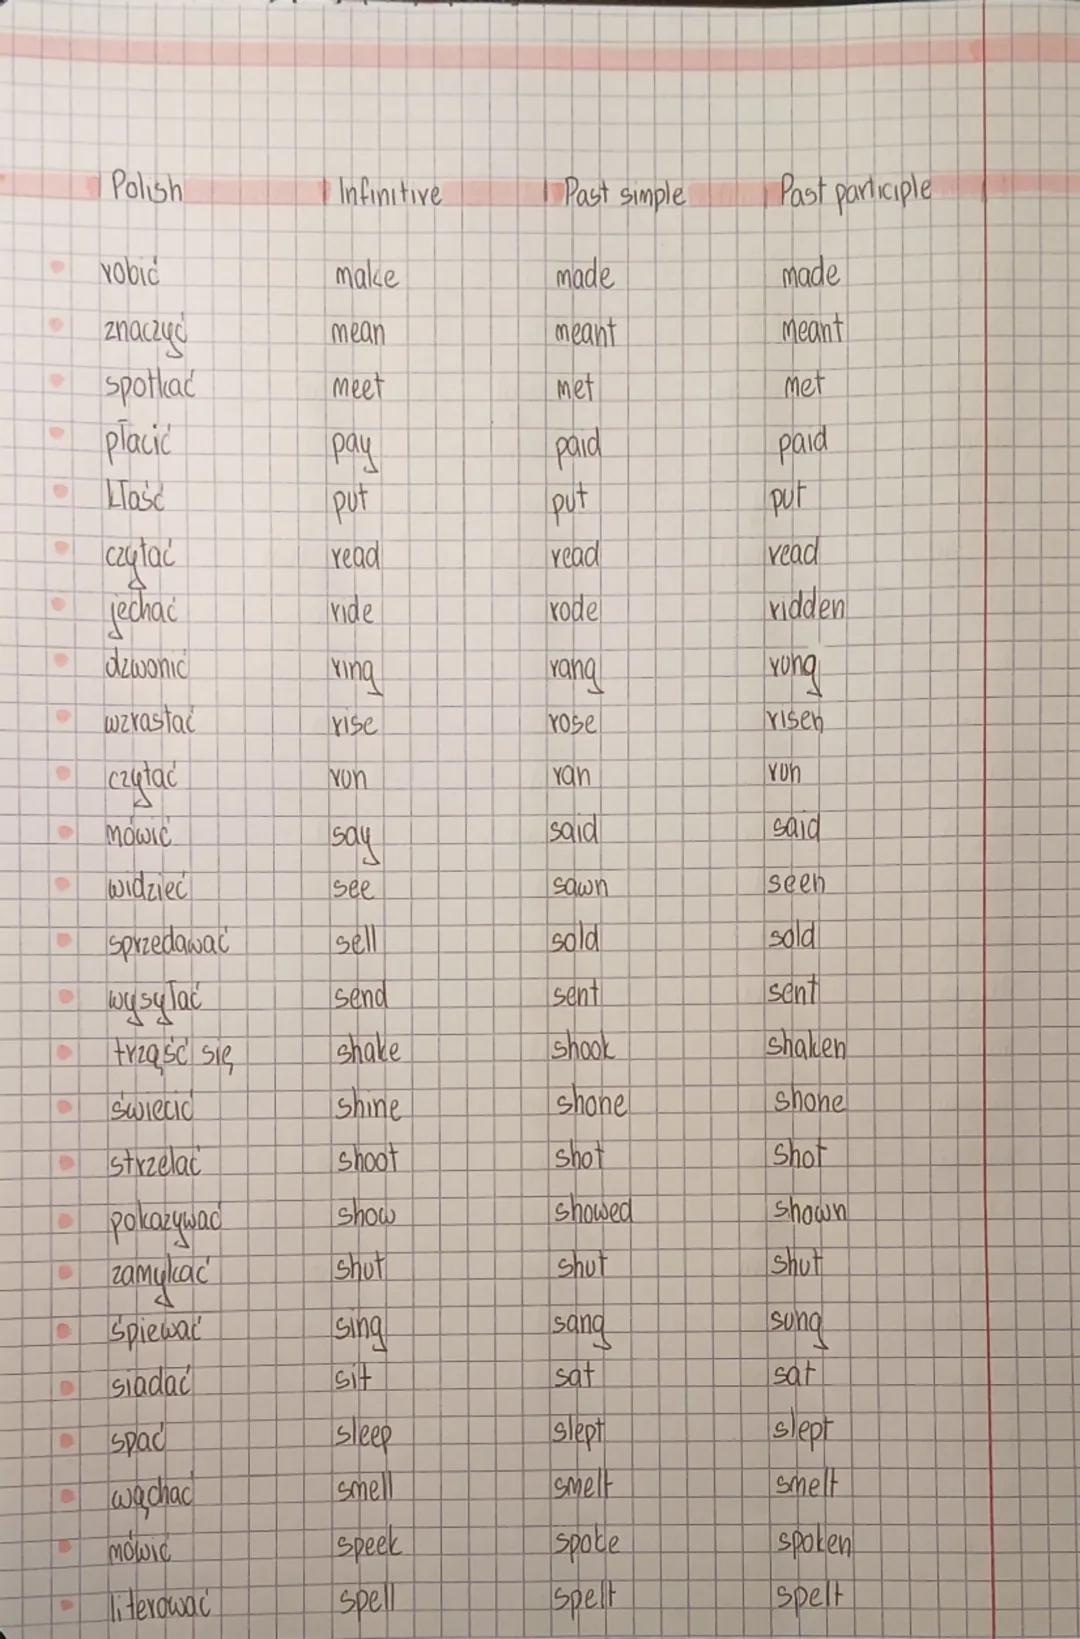 Polish Infinitive Past simple Past participle
robić make made made
znaczyć mean meant meant
spotkać meet met met
płacić pay paid paid
kłaść put put put
czytać read read read
jechać ride rode ridden
dzwonić ring rang rung
wzrastać rise rose risen
czytać run ran run
mówić say said said
widzieć see sawn seen
sprzedawać sell sold sold
wysyłać send sent sent
trząść się shake shook shaken
świecić shine shone shone
strzelać shoot shot shot
pokazywać show showed shown
zamykać shut shut shut
śpiewać sing sang sung
siadać sit sat sat
spać sleep slept slept
wąchać smell smelt smelt
mówić speek spoke spoken
literować spell spelt spelt